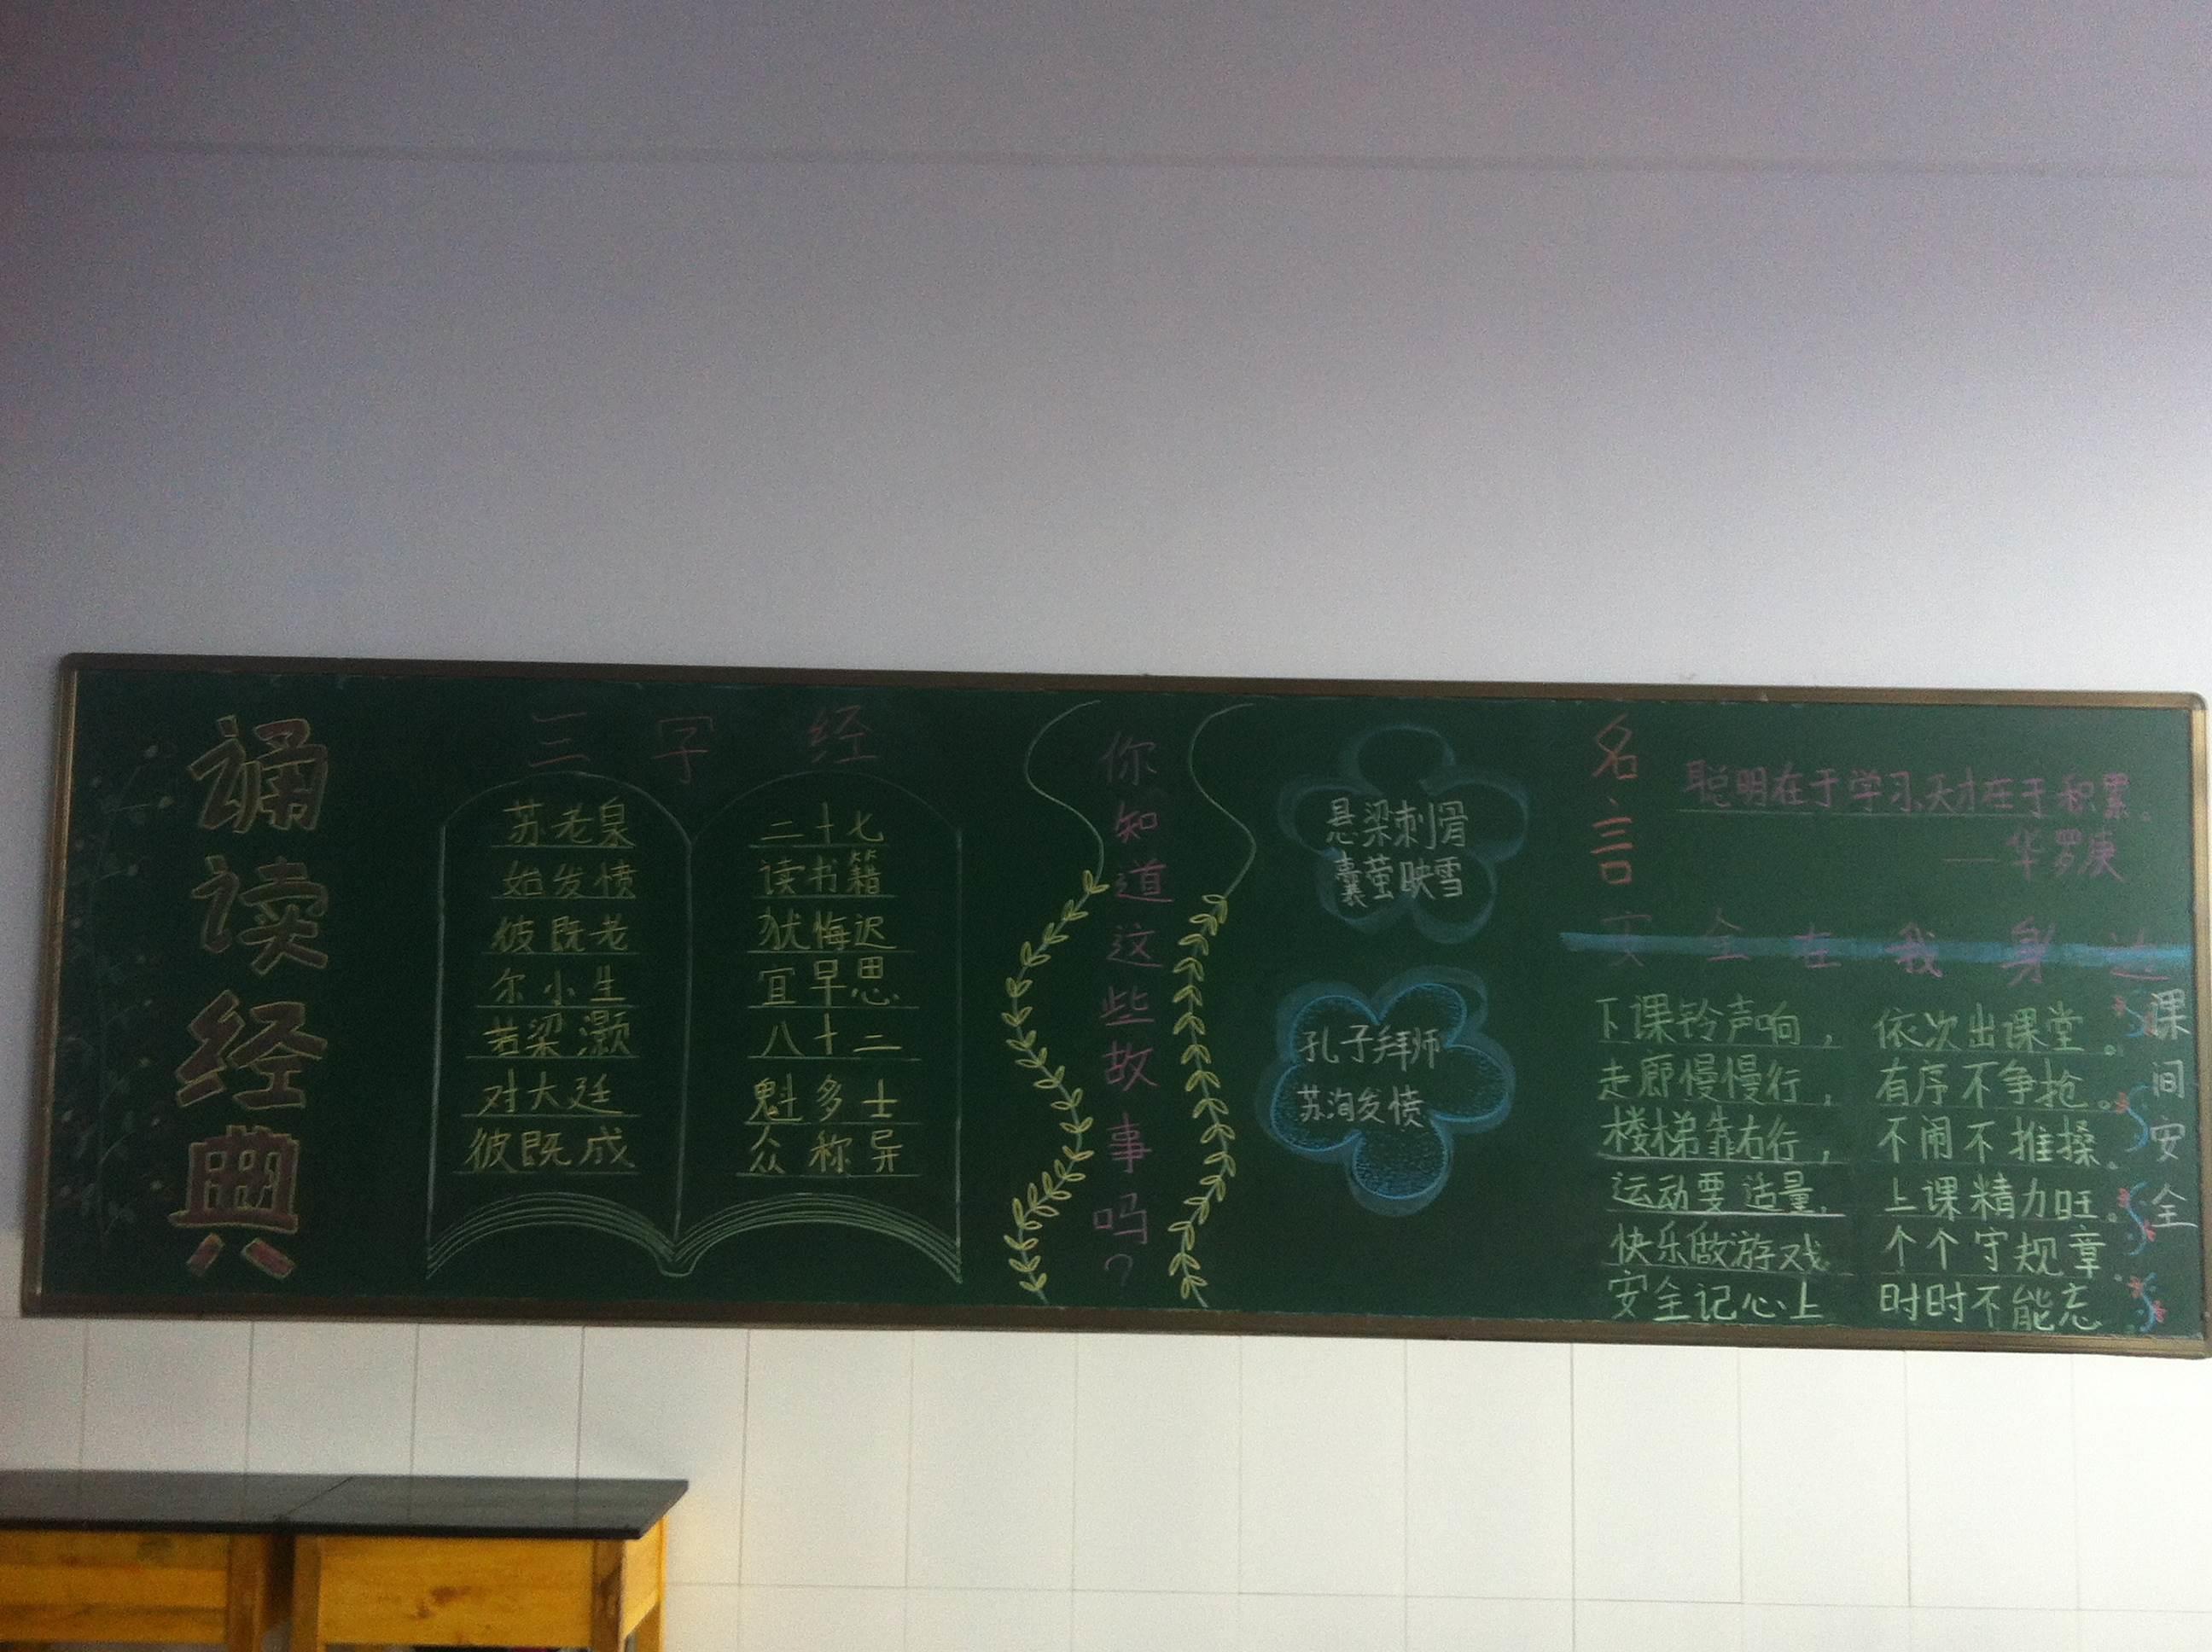 诵读经典
三字经
苏老泉 二十七
始发愤 读书籍
彼既老 犹悔迟
尔小生 宜早思
若梁灏 八十二
对大廷 魁多士
彼既成 众称异
你知道这些故事吗?
悬梁刺骨
囊萤映雪
孔子拜师
苏洵发愤
名言
聪明在于学习,天才在于积累。
——华罗庚
安全在我身边
下课铃声响, 依次出课堂。
走廊慢慢行, 有序不争抢。
楼梯靠右行, 不闹不推搡。
运动要适量, 上课精力旺。
快乐做游戏 个个守规章
安全记心上 时时不能忘
课间安全